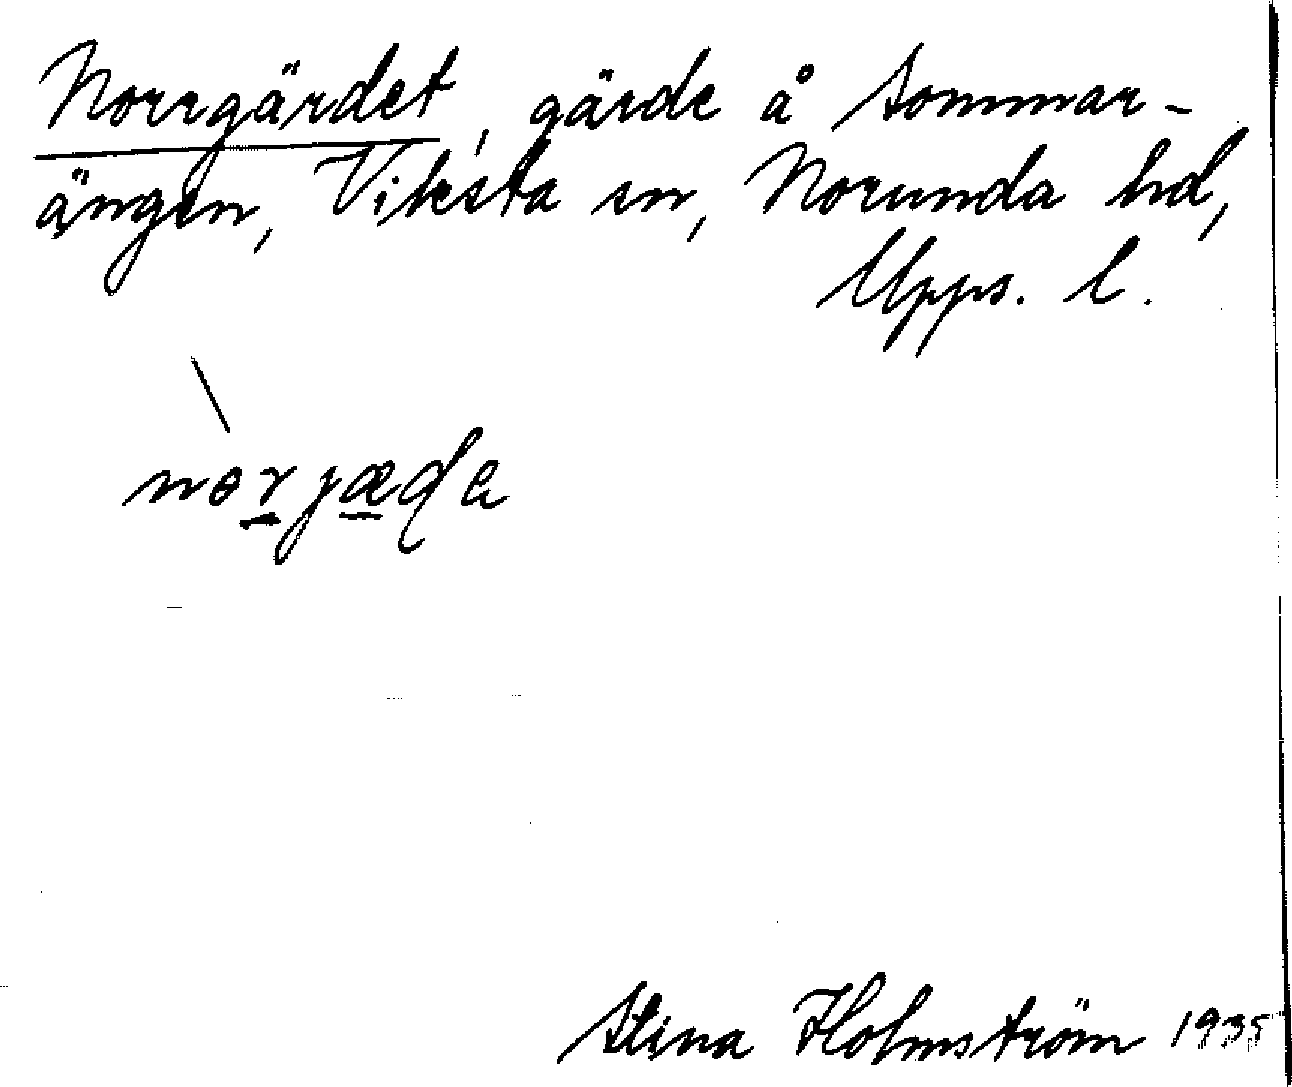 Norrgärdet, gärde å Sommar-
ängen, Viksta sn, Norunda hd,
Upps. l.
Stina Holmström 1935